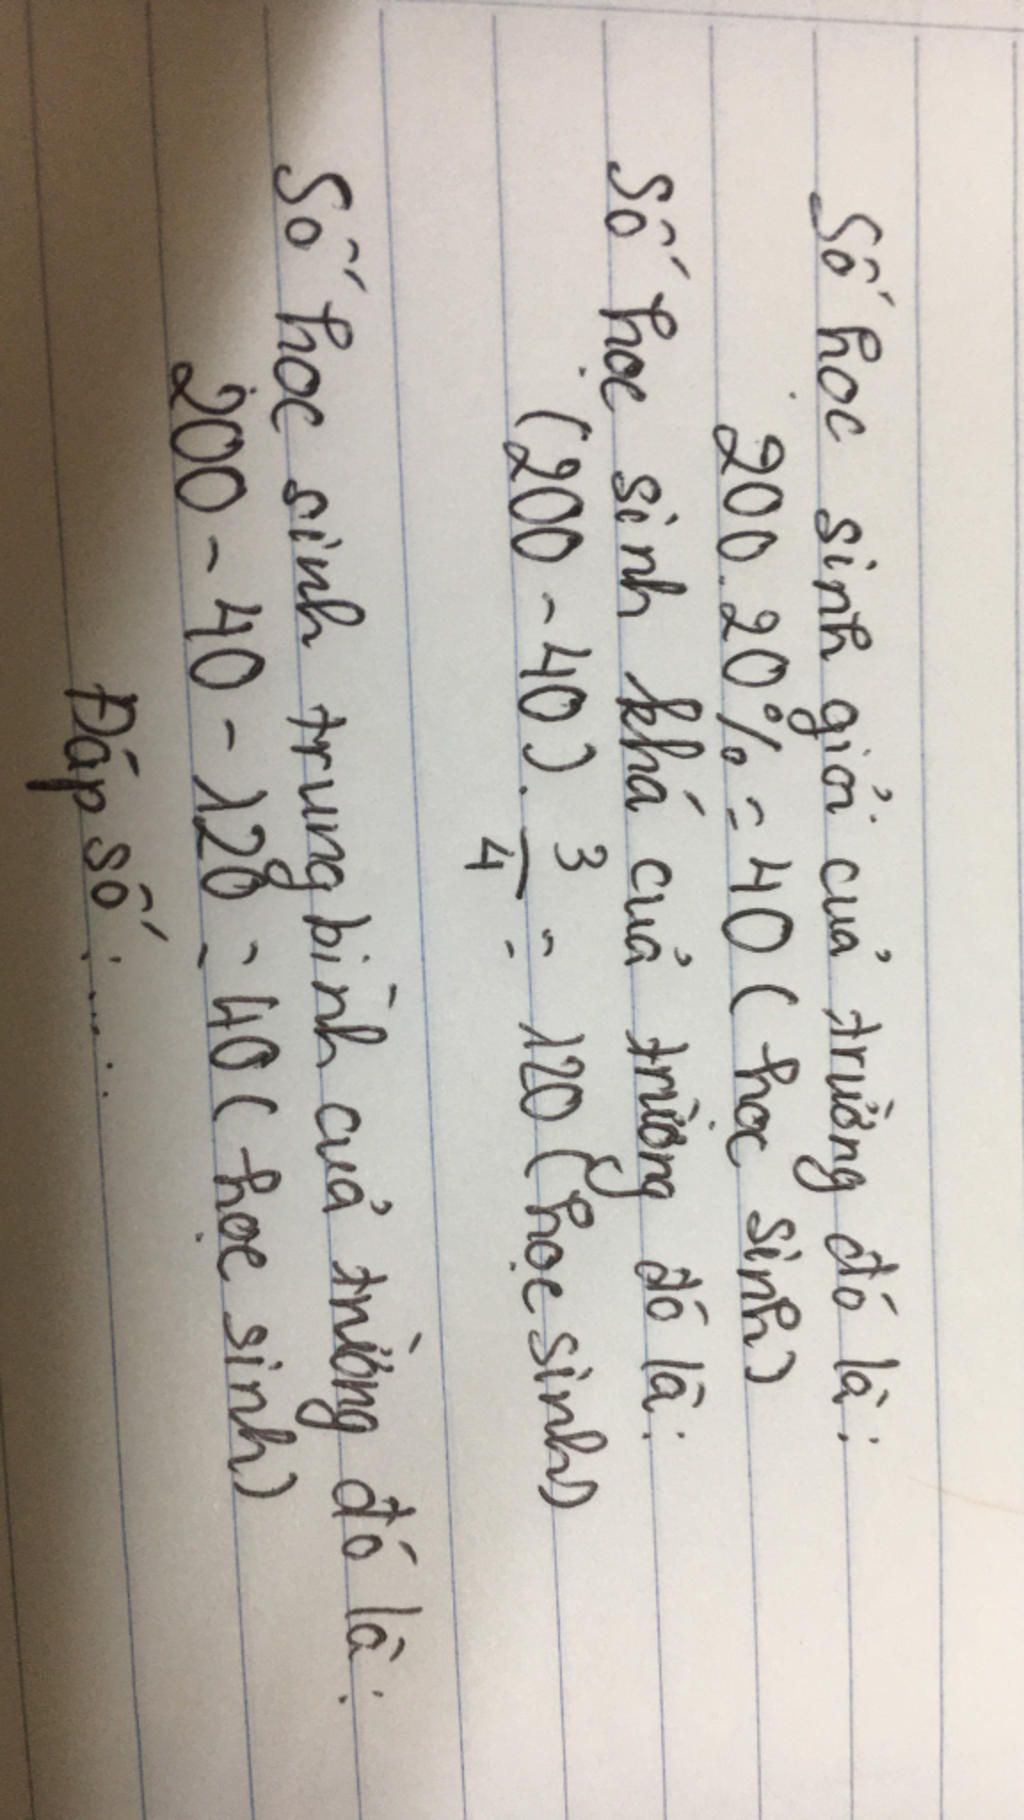 Số học sinh giỏi của trường đó là:
200.20% = 40 (học sinh)
Số học sinh khá của trường đó là:
(200 - 40) . 3/4 = 120 (học sinh)
Số học sinh trung bình của trường đó là:
200 - 40 - 120 = 40 (học sinh)
Đáp số: .....